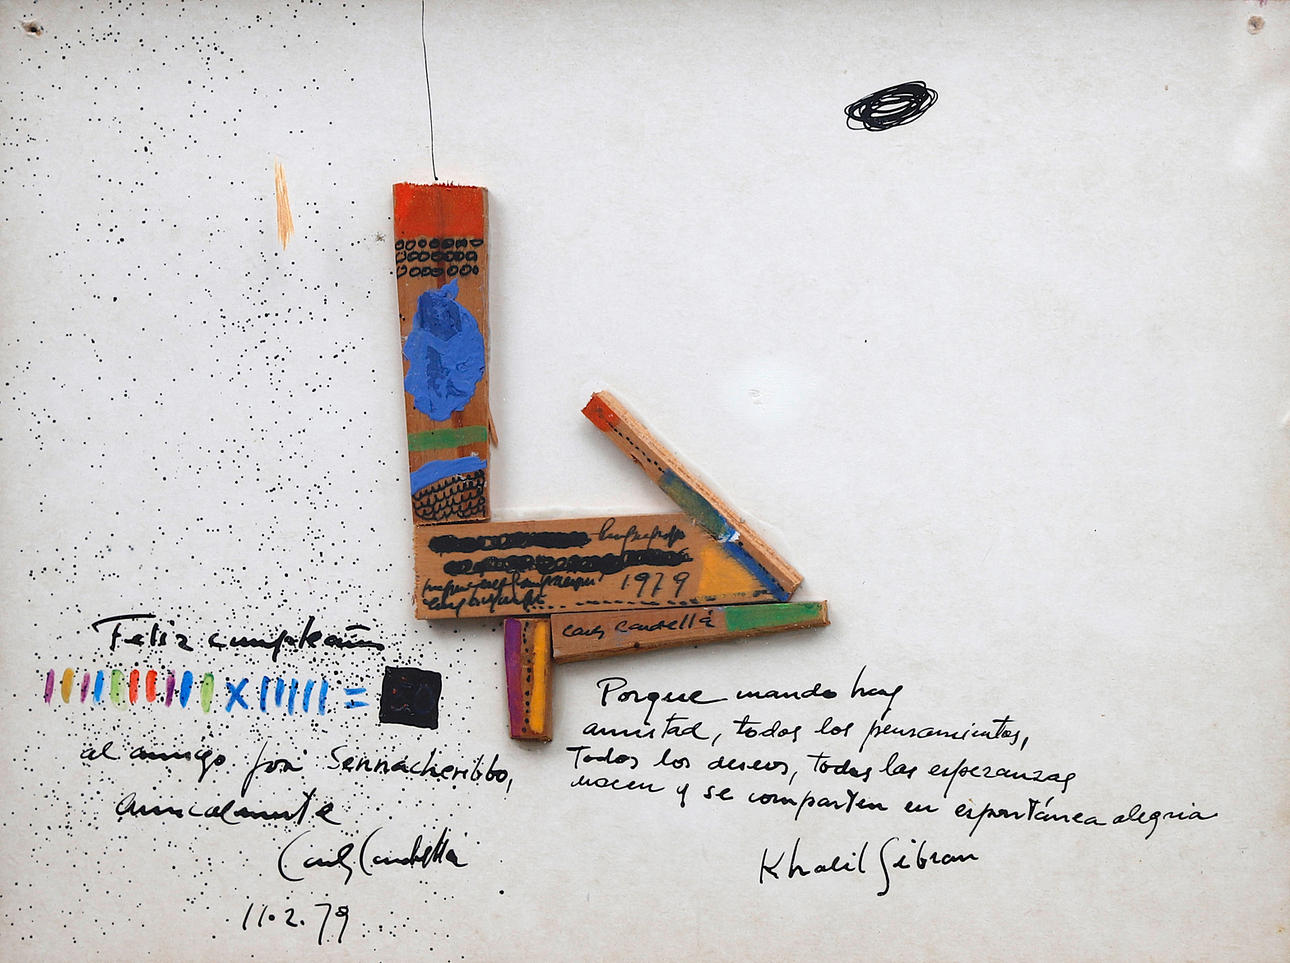 1979
Carlos Candellá
Feliz cumpleaños
X =
al amigo José Sennacheribbo,
amicalmente
Carlos Candellá
11.2.79
Porque cuando hay
amistad, todos los pensamientos,
Todos los deseos, todas las esperanzas
nacen y se comparten en espontánea alegria
Khalil Gibran